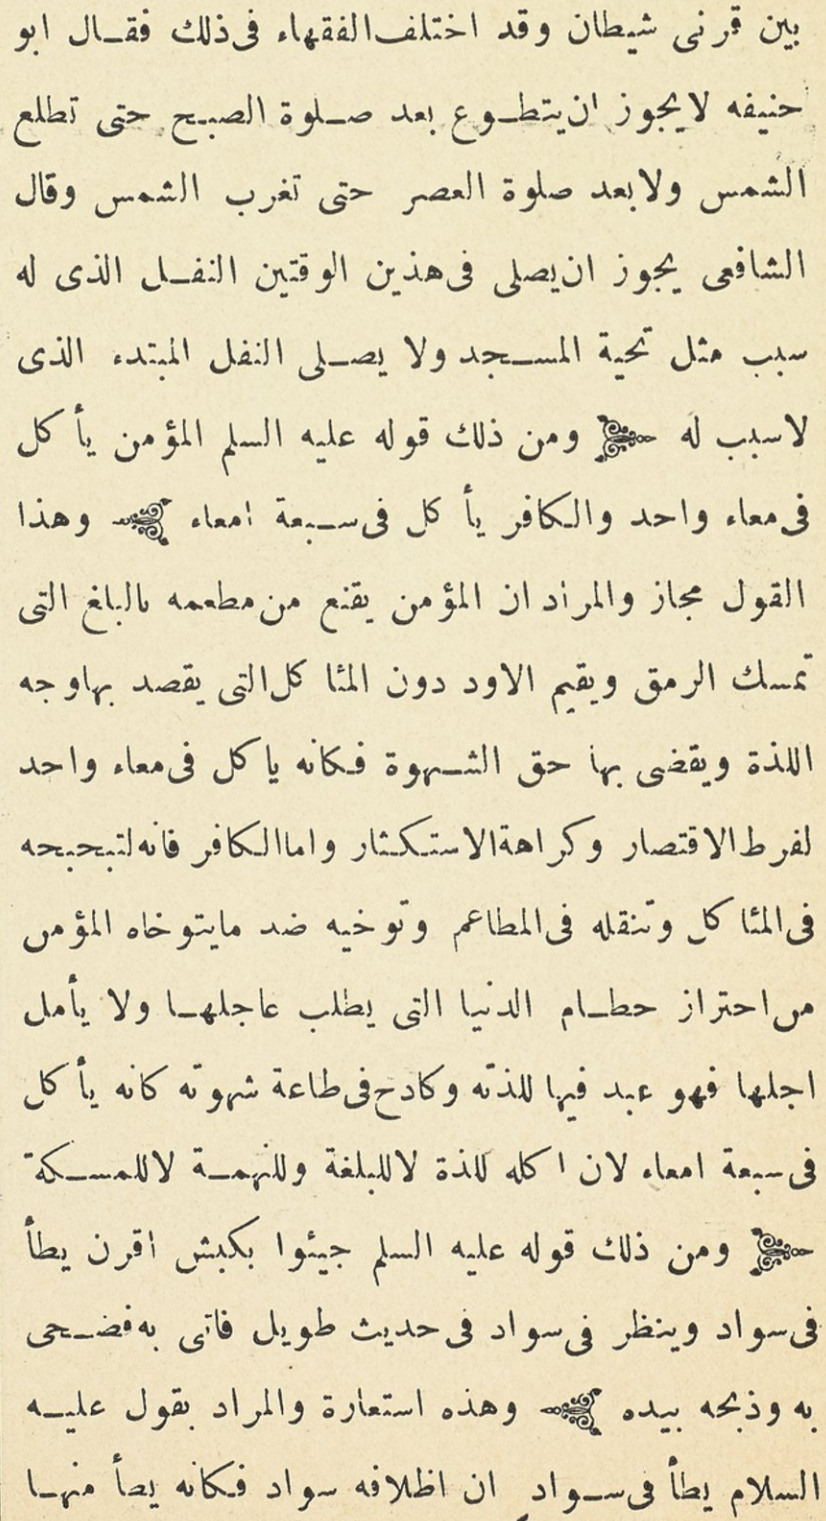 بين قرنى شيطان وقد اختلف الفقهاء فى ذلك فقال ابو
حنيفه لا يجوز ان يتطوع بعد صلوة الصبح حتى تطلع
الشمس ولا بعد صلوة العصر حتى تغرب الشمس وقال
الشافعى يجوز ان يصلى فى هذين الوقتين النفل الذى له
سبب مثل تحية المسجد ولا يصلى النفل المبتدء الذى
لا سبب له ومن ذلك قوله عليه السلم المؤمن يأكل
فى معاء واحد والكافر يأكل فى سبعة امعاء وهذا
القول مجاز والمراد ان المؤمن يقنع من مطعمه بالبلغ التى
تمسك الرمق ويقيم الاود دون المئاكل التى يقصد بها وجه
اللذة ويقضى بها حق الشهوة فكانه ياكل فى معاء واحد
لفرط الاقتصار وكراهة الاستكثار واما الكافر فانه لتبحبحه
فى المئاكل وتنقله فى المطاعم وتوخيه ضد مايتوخاه المؤمن
من احتراز حطام الدنيا التى يطلب عاجلها ولا يأمل
اجلها فهو عبد فيها للذته وكادح فى طاعة شهوته كانه يأكل
فى سبعة امعاء لان اكله للذة لا للبلغة وللنهمة لا للمسكة
ومن ذلك قوله عليه السلم جيئوا بكبش اقرن يطأ
فى سواد وينظر فى سواد فى حديث طويل فاتى به فضحى
به وذبحه بيده وهذه استعارة والمراد بقول عليه
السلام يطأ فى سواد ان اظلافه سواد فكانه يطأ منها